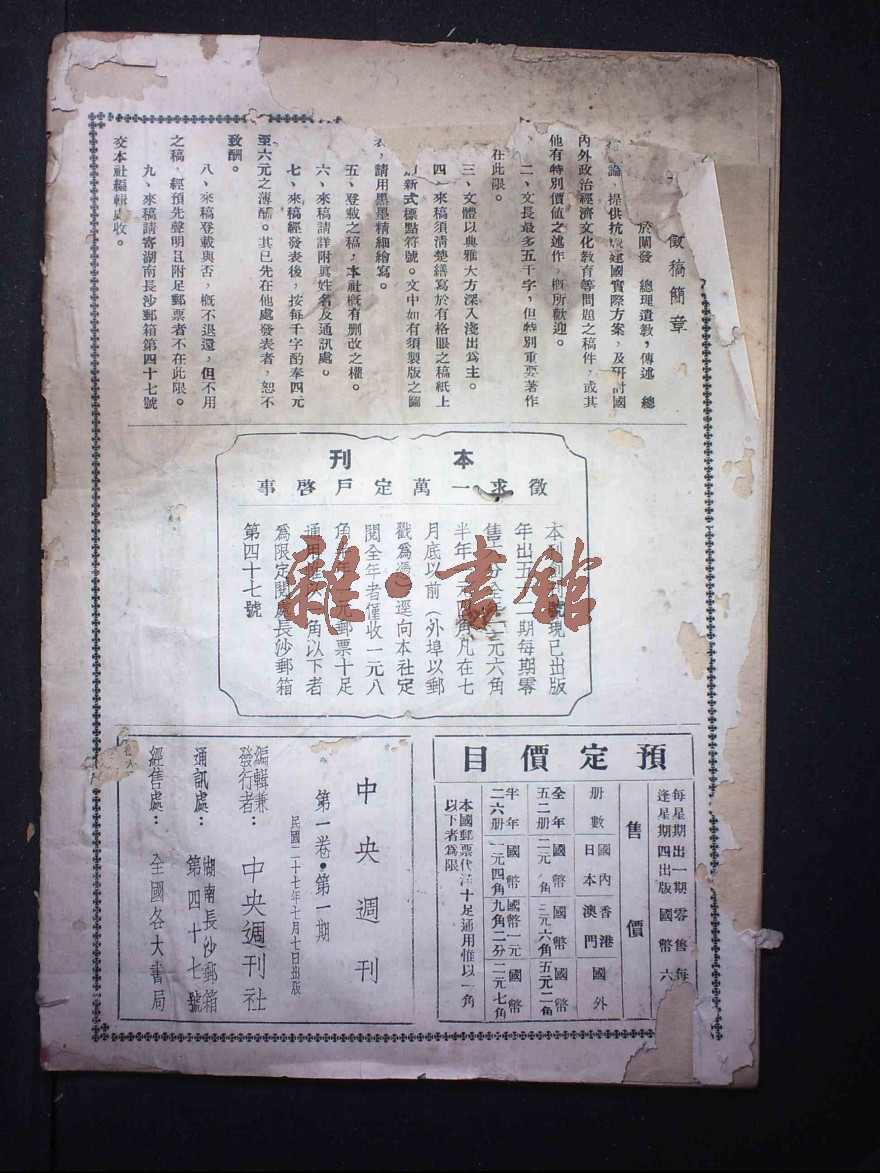 徵稿簡章
於闡發　總理遺敎，傳述　總
論，提供抗戰建國實際方案，及研討國
內外政治經濟文化敎育等問題之稿件，或其
他有特別價值之述作，槪所歡迎。
二、文長最多五千字，但特別重要著作
在此限。
三、文體以典雅大方深入淺出爲主。
四　來稿須淸楚繕寫於有格眼之稿紙上
新式標點符號。文中如有須製版之圖
表，請用黑墨精細繪寫。
五、登載之稿，本社槪有删改之權。
六、來稿請詳附眞姓名及通訊處。
七、來稿經發表後，按每千字酌奉四元
至六元之薄酬。其已先在他處發表者，恕不
致酬。
八、來稿登載與否，槪不退還，但不用
之稿，經預先聲明且附足郵票者不在此限。
九、來稿請寄湖南長沙郵箱第四十七號
交本社編輯收。
本刊
徵求一萬定戶啓事
本刊號現已出版
年出五十二期每期零
售六分全年二元六角
半年一元四角凡在七
月底以前（外埠以郵
戳爲憑）逕向本社定
閱全年者僅收一元八
角半年一元郵票十足
通用惟以一角以下者
爲限定閱處長沙郵箱
第四十七號
預定價目
每星期出一期零售每
逢星期四出版國幣六
售價
册數
國內日本
香港澳門
國外
全年五二册
國幣二元角
國幣三元六角
國幣五元二角
半年二六册
國幣一元四角
國幣一元九角二分
國幣二元七角
本國郵票代洋十足通用惟以一角
以下者爲限
中央週刊
第一卷・第一期
民國二十七年七月七日出版
編輯兼發行者：中央週刊社
通訊處：湖南長沙郵箱第四十七號
經售處：全國各大書局
雜・書館